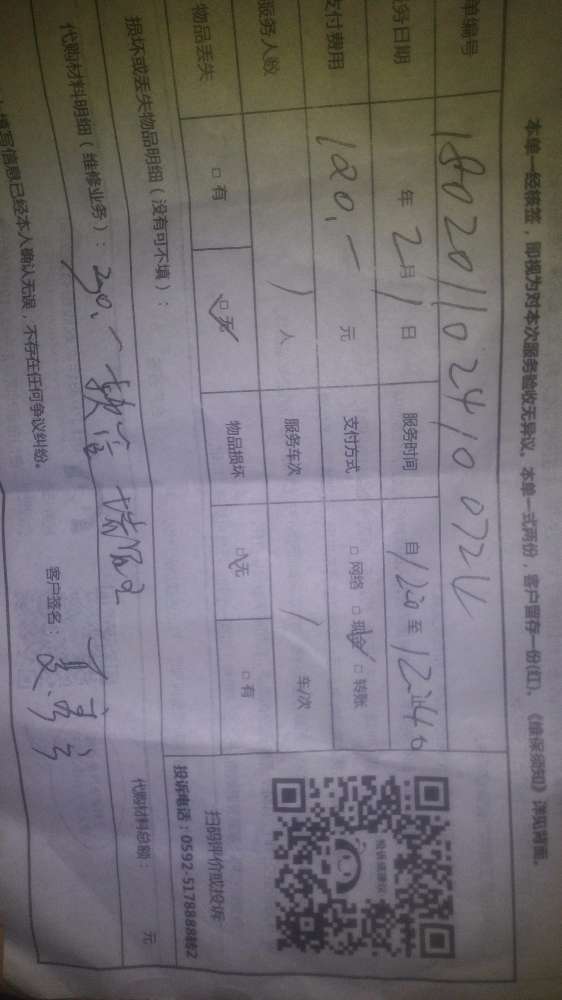 本单一经核签，即视为对本次服务验收无异议。本单一式两份，客户留存一份(红)。《维保须知》详见背面。
单编号
务日期 年 2 月 1 日 服务时间 自 至
支付费用 120.一 元 支付方式 □ 网络 □ 现金 □ 转账
服务人数 1 人 服务车次 1 车/次
物品丢失 □ 有 □ 无 物品损坏 □ 无 □ 有
扫码评价或投诉
投诉电话：0592-5178888转2
损坏或丢失物品明细（没有可不填）：
代购材料明细（维修业务）：
代购材料总额： 元
填写信息已经本人确认无误，不存在任何争议纠纷。 客户签名：